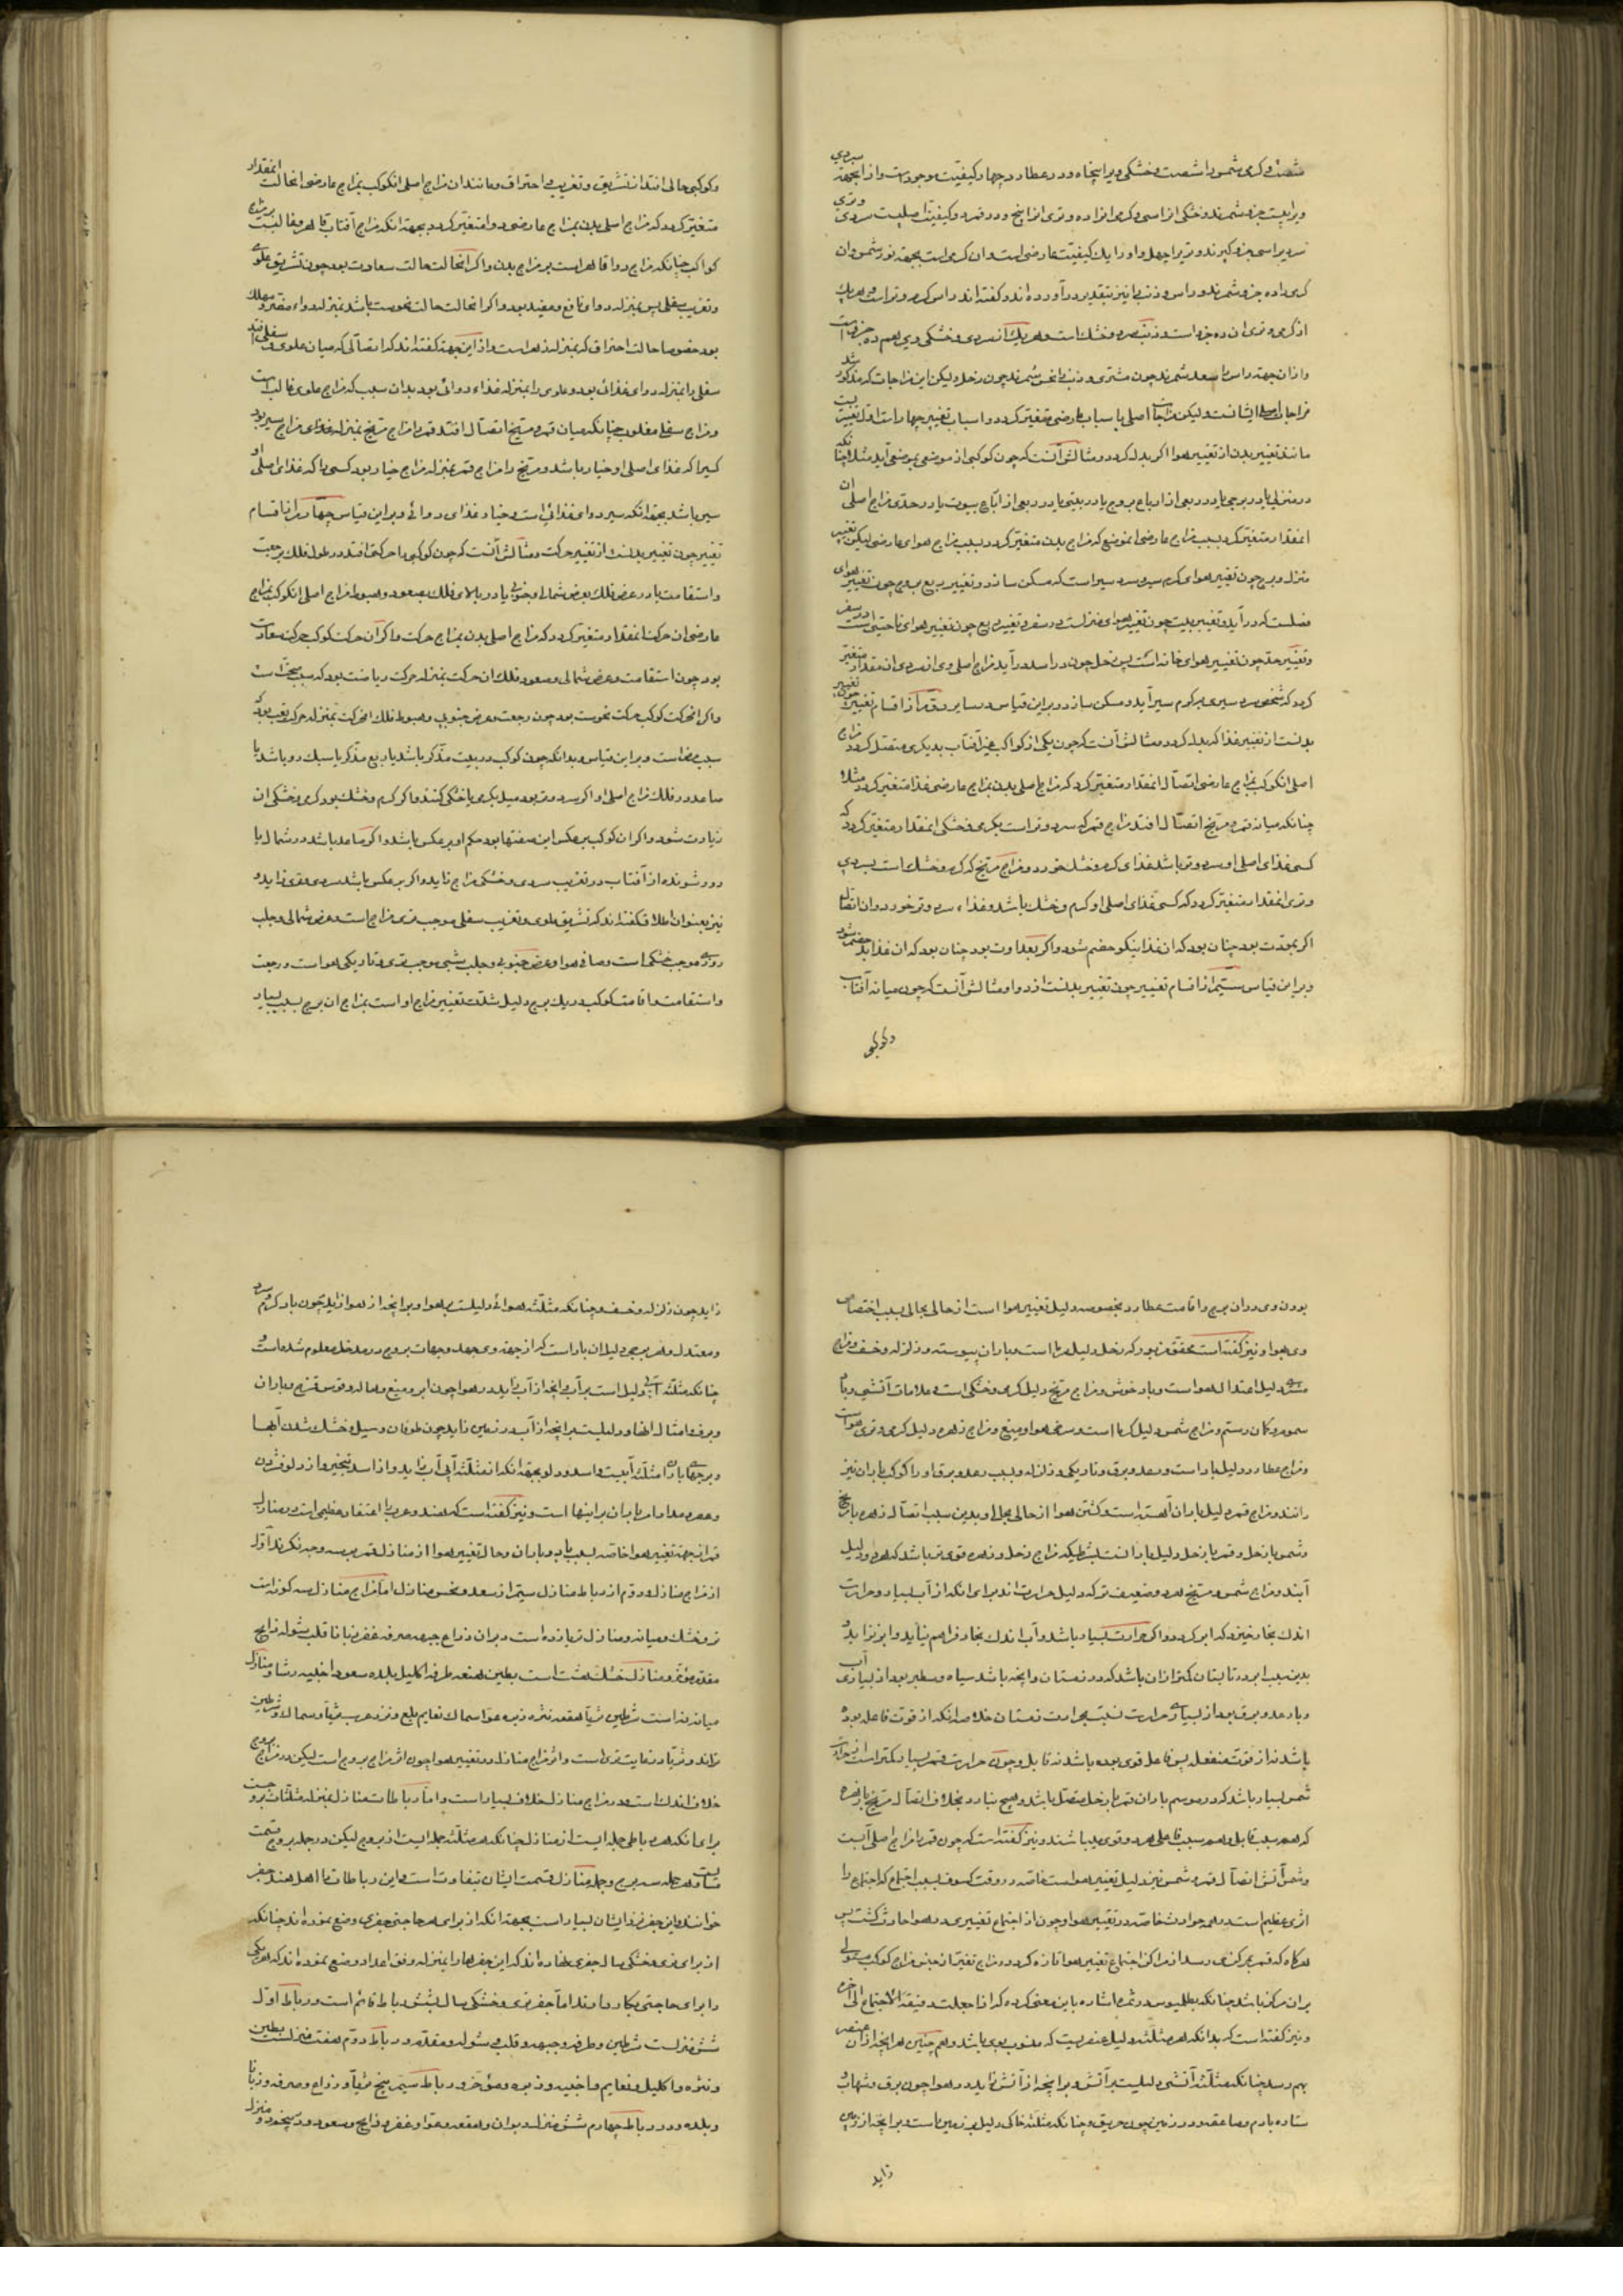 وازان جهة راس را سعد شمرند چون مشتری و ذنب را نحس شمرند چون زحل و لیکن این مزاجات که مذکور شد
مانند تغییر بدن از تغییر هوا اکر بدل کردد و مثالش آنست که چون کوکبی از موضعی بموضعی آید مثلا چنانکه
در منزلی یا در برجی یا در ربعی از ارباع بروج یا در بیتی یا در ربعی از ارباع بیوت یا در حدی مزاج اصلی ان
انمقدار متغیر کردد بسبب مزاج عارضی انموضع که مزاج بدن متغیر کردد بسبب مزاج هوای عارضی لیکن تغییر
بدنست از تغییر غذا که بدل کردد و مثالش آنست که چون یکی از کواکب غیر آفتاب بدیکری متصل کردد مزاج
اصلی انکوکب بمزاج عارضی اتصال انمقدار متغیر کردد که مزاج اصلی بدن بمزاج عارضی غذا متغیر کردد مثلا
چنانکه میانه قمر و مریخ اتصال افتد مزاج قمر که سرد و تر است بکرمی و خشکی انمقدار متغیر کردد که
کسی غذای اصلی او سرد و تر باشد غذای کرم و خشک خورد و مزاج مریخ که کرم و خشک است بسردی
و تری انمقدار متغیر کردد که کسی غذای اصلی او کرم و خشک باشد و غذاء سرد و تر خورد و ان اتصال
اکر بمودت بود چنان بود که ان غذا نیکو هضم شود و اکر بعداوت بود چنان بود که ان غذا بد هضم شود
و برین قیاس سیم از اقسام تغییر چون تغییر بدنست از دوا و مثالش آنست که چون میانه آفتاب
وکوکبی
وکوکبی حالی افتد از تشریق و تغریب و احتراق و مانند ان مزاج اصلی انکوکب بمزاج عارضی انحالت انمقدار
متغیر کردد که مزاج اصلی بدن بمزاج عارضی دوا متغیر کردد بجهة انکه مزاج آفتاب قاهر و غالبست بر مزاج
کواکب چنانکه مزاج دوا قاهر است بر مزاج بدن و اکر انحالت حالت سعادت بود چون تشریق علوی
و تغریب سفلی پس بمنزله دوای نافع و مفید بود و اکر انحالت حالت نحوست باشد بمنزله دواء مضر و مهلک
بود خصوصا حالت احتراق که بمنزله زهر است و از این جهة کفته اند که اتصالی که میان علوی و سفلی افتد
سفلی را بمنزله دوای غذائی بود و علوی را بمنزله غذاء دوائی بود بدان سبب که مزاج علوی غالب است
و مزاج سفلی مغلوب چنانکه میان قمر و مریخ اتصال افتد قمر را مزاج مریخ بمنزله غذای مزاج سیر بود
کسیرا که غذای اصلی او خیار باشد و مریخ را مزاج قمر بمنزله مزاج خیار بود کسی را که غذای اصلی او
سیر باشد بجهة انکه سیر دوای غذائی است و خیار غذای دوائی و برین قیاس چهارم از اقسام
تغییر چون تغییر بدنست از تغییر حرکت و مثالش آنست که چون کوکبی را حرکتی افتد در طول فلک برجعت
و استقامت یا در عرض فلک بعرض شمالی و جنوبی یا در بالای فلک بصعود و هبوط مزاج اصلی انکوکب بمزاج
عارضی ان حرکت انمقدار متغیر کردد که مزاج اصلی بدن بمزاج حرکت و اکر آن حرکت کوکب حرکت سعادت
بود چون استقامت و عرض شمالی و صعود فلک ان حرکت بمنزله حرکت ریاضت بود که سبب صحت است
و اکر انحرکت کوکب حرکت نحوست بود چون رجعت و عرض جنوبی و هبوط فلک انحرکت بمنزله حرکت تعب بود که
سبب مرض است و برین قیاس و بدانکه چون کوکب در بیت مذکر باشد یا ربع مذکر یا سبک رو باشد یا
صاعد در فلک مزاج اصلی او اکر سرد و تر بود میل بکرمی یا خشکی کند و اکر کرم و خشک بود کرمی و خشکی ان
زیادت شود و اکر ان کوکب برعکس این صفتها بود حکم او برعکس باشد و اکر صاعد باشد در شمال یا
دور شونده از آفتاب در تغریب سردی و خشکی مزاج زاید و اکر برعکس باشد سردی و تری زاید و
نیز بعنوان اطلاق کفته اند که تشریق علوی و تغریب سفلی موجب تری مزاج است و عرض شمالی و جلب
روزی موجب خشکی است و صافی هوا و عرض جنوبی و جلب شبی موجب تری و تاریکی هوا است و رجعت
و استقامت و اقامت کوکب در یک برج دلیل شدت تغییر مزاج او است بمزاج ان برج بسبب بسیار
بودن وی در ان برج و اقامت عطارد بخصوصه دلیل تغییر هوا است از حالی بحالی بسبب اختصاص
وی بهوا و نیز کفته است محقق مزبور که زحل دلیل سرما است و باران پیوسته و زلزله و خسف و مزاج
مشتری دلیل اعتدال هواست و باد خوش و مزاج مریخ دلیل کرمی و خشکی است و علامات آتشی و باد
سموم و کمان رستم و مزاج شمس دلیل کرما است و سرخی هوا و میغ و مزاج زهره دلیل کرمی و تری هواست
و مزاج عطارد دلیل باد است و رعد و برق و تاریکی و زلزله و بسبب رعد و برق او را کوکب باران نیز
دانند و مزاج قمر دلیل باران آهسته است و کشتن هوا از حالی بحالی و بدین سبب اتصال زهره با مریخ
و شمس با زحل و قمر با زحل دلیل بارانست بشرطیکه مزاج زحل و زهره قوی تر باشد که هر دو دلیل
آبند و مزاج شمس و مریخ هر دو ضعیف تر که دلیل حرارت اند برای انکه از آب بسیار و حرارت
اندک بخار خیزد که ابر کردد و اکر حرارت بسیار باشد و آب اندک بخار فراهم نیاید و ابر نزاید و
بدین سبب ابر در تابستان کمتر از ان باشد که در زمستان و انچه باشد سیاه و سطبر بود از بسیاری آب
و باد و رعد و برق بود از بسیاری حرارت نسبت بحرارت زمستان خلاصه انکه از قوت فاعله بوده
باشد نه از قوت منفعله پس فاعل قوی بوده باشد نه قابل و چون حرارت قمر بسیار کمتر است از حرارت
شمس بسیار باشد که در موسم باران قمر با زحل متصل باشد و هیچ نبارد بخلاف اتصال مریخ با زهره
که هم سبب قابل و هم سبب فاعل هر دو قوی باشند و نیز کفته است که چون قمر را مزاج اصلی آبست
و شمس آتش اتصال قمر و شمس نیز دلیل تغییر هواست خاصه در وقت کسوف بسبب اجتماع که اجتماع را
اثری عظیم است در همه حوادث خاصه در تغییر هوا و چون از اجتماع تغییری در هوا حادث کشت پس
هرکاه که قمر بمرکزی رسد از مراکز اجتماع تغییر هوا تازه کردد و مزاج تغیر از جنس مزاج کوکب مستولی
بران مرکز باشد چنانکه بطلمیوس در ثمره اشاره باین معنی کرده که اذا جعلت دقیقة الاجتماع الی آخره
و نیز کفته است که بدانکه هر مثلثه دلیل عنصریست که منسوب بوی باشد و هم چنین هر انچه از ان عنصر
بهم رسد چنانکه مثلثه آتشی دلیلست بر آتش و بر انچه از آتش زاید در هوا چون برق و شهاب و
ستاره با دم و صاعقه و در زمین چون حریق و چنانکه مثلثه خاکی دلیل بر زمین است و بر انچه از زمین
زاید
زاید چون زلزله و خسف و چنانکه مثلثه هوائی دلیلست بر هوا و بر انچه از هوا زاید چون باد کرم و سرد
و معتدل و هر برجی دلیل ان باد است که از جهة وی جهد و جهات بروج در مدخل معلوم شده است و
چنانکه مثلثه آبی دلیل است بر آب و انچه از آب زاید در هوا چون ابر و میغ و هاله و قوس قزح و باران
و برف و امثال انها و دلیلست بر انچه از آب در زمین زاید چون طوفان و سیل و خشک شدن آبها
و عمده مدار امر باران بر اینها است و نیز کفته است که هند و عرب را اعتقاد عظیمی است در منازل
قمر از جهة تغییر هوا خاصه بسبب باد و باران و حال تغییر هوا از منازل قمر بر سه وجه نکرند اول
از مزاج منازل و دوم از رباط منازل سیم از سعد و نحس منازل اما مزاج منازل سه کونه است
تر و خشک و میانه و منازل تر یازده است دبران ذراع جبهه صرفه غفر زبانا قلب شوله ذابح
مقدم مؤخر و منازل خشک هشت است بطین هنعه طرفه اکلیل بلده سعود اخبیه رشا و منازل
میانه نه است شرطین ثریا هقعه نثره زبره عوا سماک نعایم بلع و نزد عرب ثریا و سماک و شرطین
تراند و ثریا در نهایت تری است و اثر مزاج منازل در تغییر هوا چون اثر مزاج بروج است لیکن در مزاج بروج
خلاف اندک است و در مزاج منازل خلاف بسیار است و اما رباطات منازل بمنزله مثلثات بروجست
برای انکه هر رباطی جمله ایست از منازل چنانکه هر مثلثه جمله ایست از بروج لیکن در جمله بروج قسمت
متساویست هر جمله سه برج و جمله منازل قسمت ایشان متفاوت است و این رباطات را اهل هند جفر
خوانند و این جفر نزد ایشان بسیار است بجهة انکه از برای هر حاجتی جفری وضع نموده اند چنانکه
از برای تری و خشکی سال جفری نهاده اند که این جفرها را بمنزله وفق اعداد وضع نموده اند که هر یکی
را برای حاجتی بکار دارند اما جفر تری و خشکی سال بشش رباط قائم است و رباط اول
شش منزلست شرطین و طرفه و جبهه و قلب و شوله و مقدم و در رباط دوم هفت منزلست بطین
و نثره و اکلیل و نعایم و اخبیه و زبره و مؤخر و رباط سیم پنج ثریا و ذراع و صرفه و زبانا
و بلده و در رباط چهارم شش منزلست دبران و هقعه و عوا و غفر و ذابح و سعود و در پنجم دو منزل